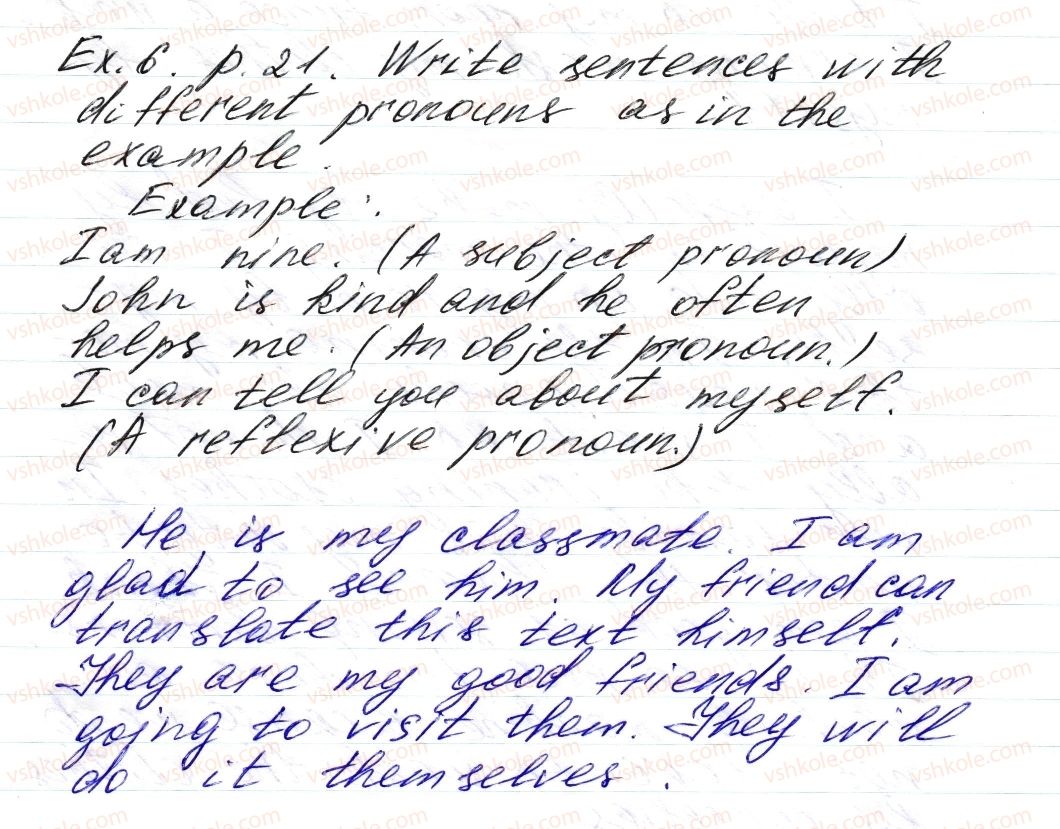 Ex. 6. p. 21. Write sentences with
different pronouns as in the
example.
Example:
I am nine. (A subject pronoun)
John is kind and he often
helps me. (An object pronoun.)
I can tell you about myself.
(A reflexive pronoun.)
He is my classmate. I am
glad to see him. My friend can
translate this text himself.
They are my good friends. I am
going to visit them. They will
do it themselves.